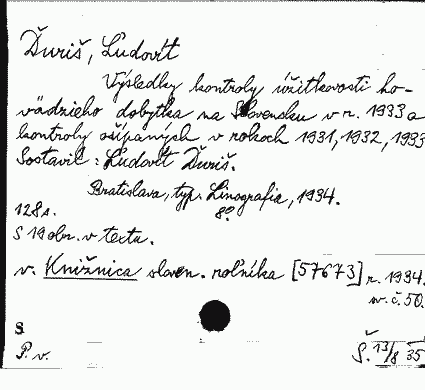 Ďuriš, Ľudovít
Výsledky kontroly úžitkovosti ho-
vädzieho dobytka na Slovensku v r. 1933 a
kontroly ošípaných v rokoch 1931, 1932, 1933
Sostavil: Ľudovít Ďuriš.
Bratislava, typ. Linografia, 1934.
8°
128 s.
S 19 obr. v textu.
v. Knižnica sloven. roľníka [57673] r. 1934.
sv. č. 50.
S
P. v. Š. 13/8 35